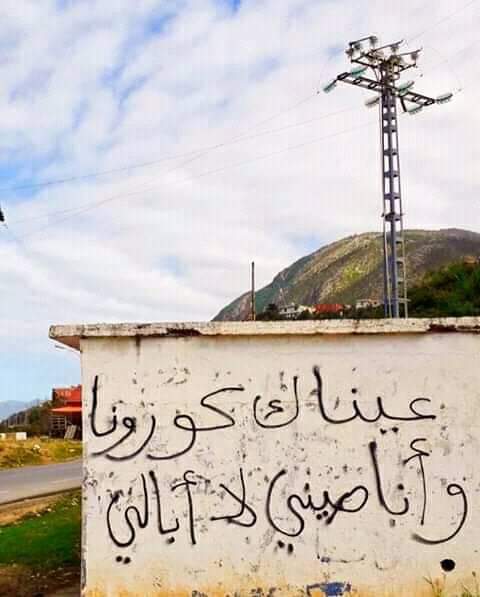 عيناك كورونا
و أنا صيني لا أبالي